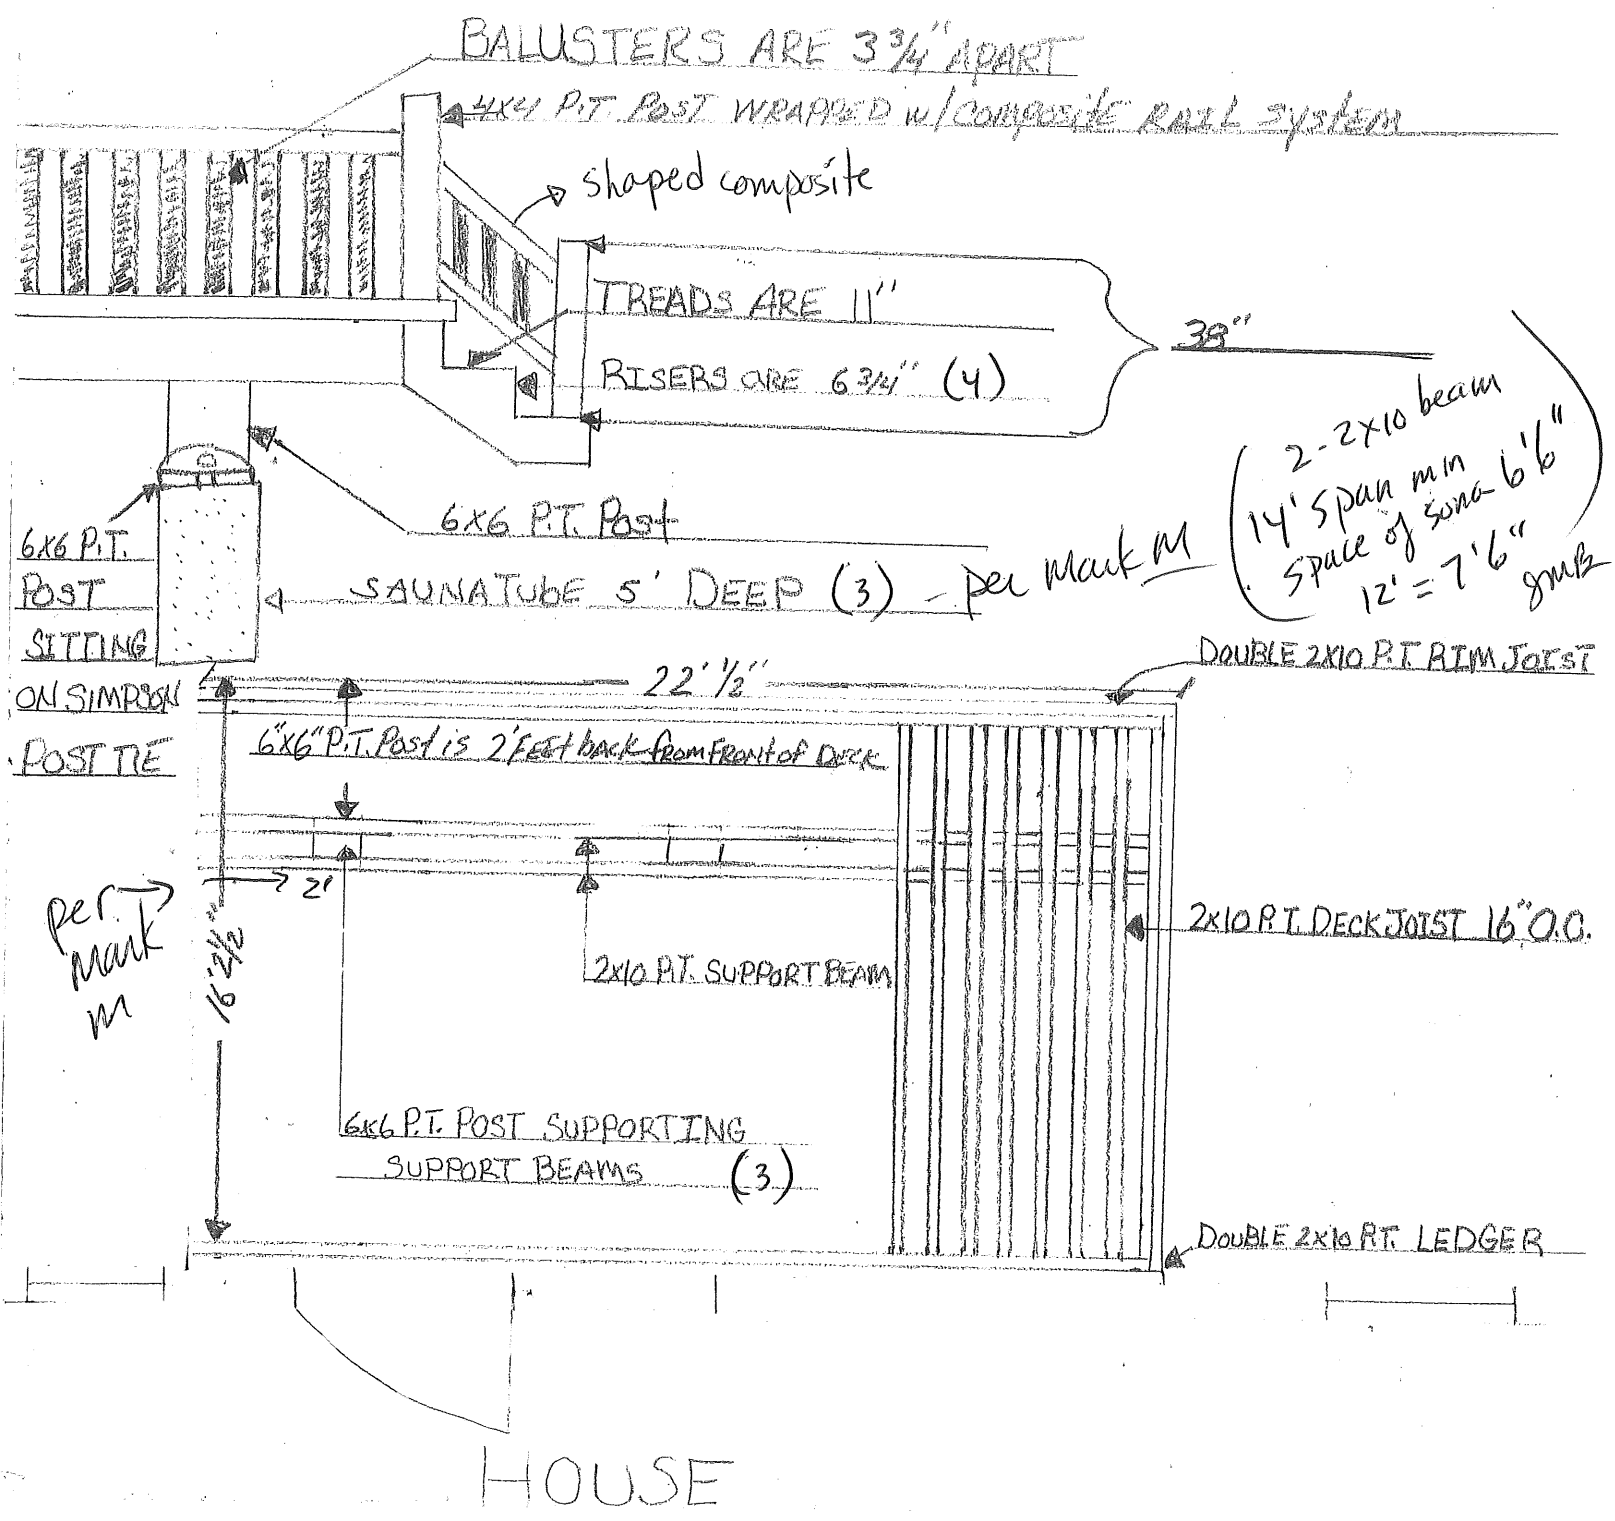 BALUSTERS ARE 3 3/4" APART
4X4 P.T. POST WRAPPED w/COMPOSITE RAIL SYSTEM
shaped composite
TREADS ARE 11"
38"
RISERS ARE 6 3/4" (4)
2-2x10 beam
14' span min
space of sona 6'6"
12' = 7'6"
6X6 P.T. Post
6X6 P.T.
POST
SITTING
ON SIMPSON
POST TIE
SAUNATUBE 5' DEEP (3) - per Mark M
DOUBLE 2X10 P.T. RIM JOIST
22' 1/2"
6"X6" P.T. Post is 2' FEET back from FRONT of DECK
2'
per
Mark
M
16' 2 1/2"
2X10 P.T. DECK JOIST 16" O.C.
2X10 P.T. SUPPORT BEAM
6X6 P.T. POST SUPPORTING
SUPPORT BEAMS (3)
DOUBLE 2X10 P.T. LEDGER
HOUSE